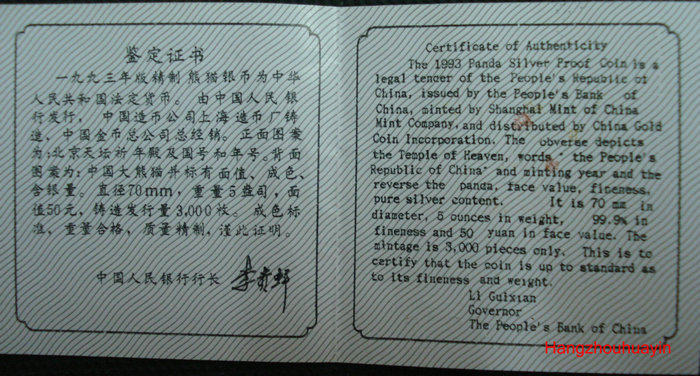 鉴定证书
一九九三年版精制熊猫银币为中华
人民共和国法定货币。 由中国人民银
行发行， 中国造币公司上海造币厂铸
造、中国金币总公司总经销。正面图案
为:北京天坛祈年殿及国号和年号。背面
图案为:中国大熊猫并标有面值、成色、
含银量。直径70mm，重量5盎司，面
值50元，铸造发行量3,000枚。成色标
准，重量合格，质量精制，谨此证明。
中国人民银行行长 李贵鲜
Certificate of Authenticity
The 1993 Panda Silver Proof Coin is a
legal tender of the People's Republic of
China, issued by the People's Bank of
China, minted by Shanghai Mint of China
Mint Company, and distributed by China Gold
Coin Incorporation. The obverse depicts
the Temple of Heaven, words " the People's
Republic of China" and minting year and the
reverse the panda, face value, fineness,
pure silver content. It is 70 mm in
diameter, 5 ounces in weight, 99.9% in
fineness and 50 yuan in face value. The
mintage is 3,000 pieces only. This is to
certify that the coin is up to standard as
to its fineness and weight.
Li Guixian
Governor
The People's Bank of China
Hangzhouhuayin